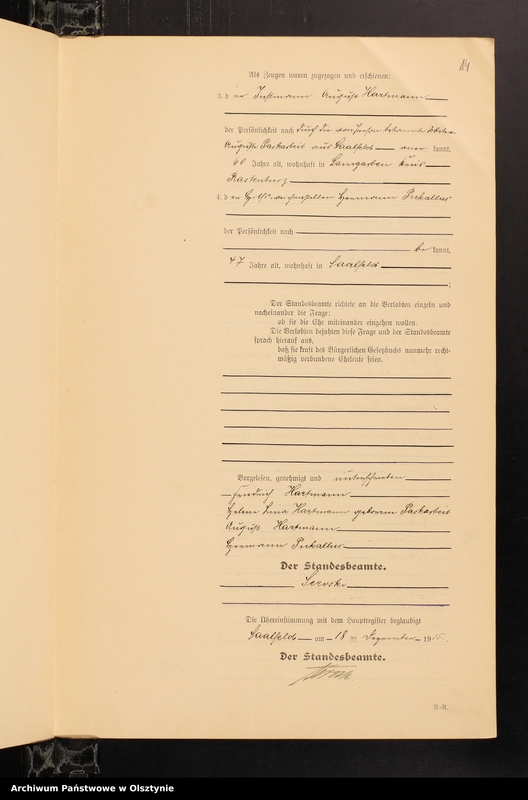 14
Als Zeugen waren zugezogen und erschienen:
3. d er Instmann August Hartmann
der Persönlichkeit nach durch die bekannte
Auguste Paskarbeit aus Saalfeld aner kannt,
60 Jahre alt, wohnhaft in Lamgarben Kreis
Rastenburg
4. d er Hilfsweichensteller Hermann Perkallus
der Persönlichkeit nach
be kannt,
47 Jahre alt, wohnhaft in Saalfeld
;
Der Standesbeamte richtete an die Verlobten einzeln und
nacheinander die Frage:
ob sie die Ehe miteinander eingehen wollen.
Die Verlobten bejahten diese Frage und der Standesbeamte
sprach hierauf aus,
daß sie kraft des Bürgerlichen Gesetzbuchs nunmehr recht-
mäßig verbundene Eheleute seien.
Vorgelesen, genehmigt und unterschrieben
Friedrich Hartmann
Helene Lina Hartmann geborene Paskarbeit
August Hartmann
Hermann Perkallus
Der Standesbeamte.
Die Übereinstimmung mit dem Hauptregister beglaubigt
Saalfeld am 18 ten Dezember 1915.
Der Standesbeamte.
R.-R.
Archiwum Państwowe w Olsztynie